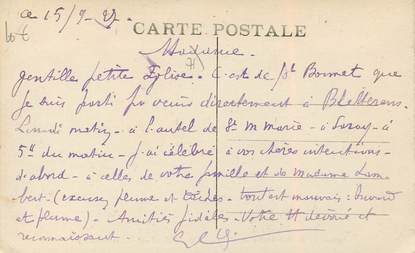 Ce 15/9-27-
CARTE POSTALE
Madame.
Gentille petite Église. C'est de St Bonnet que
je suis parti pr venir directement à Bletterans.
Lundi matin - à l'autel de Ste M Marie - à
5h du matin - j'ai célébré à vos chères intentions
d'abord - à celles de votre famille et de Madame Lam
bert (excusez plume et - tout est mauvais:
et plume) - Amitiés fidèles - Votre tt dévoué et
reconnaissant.